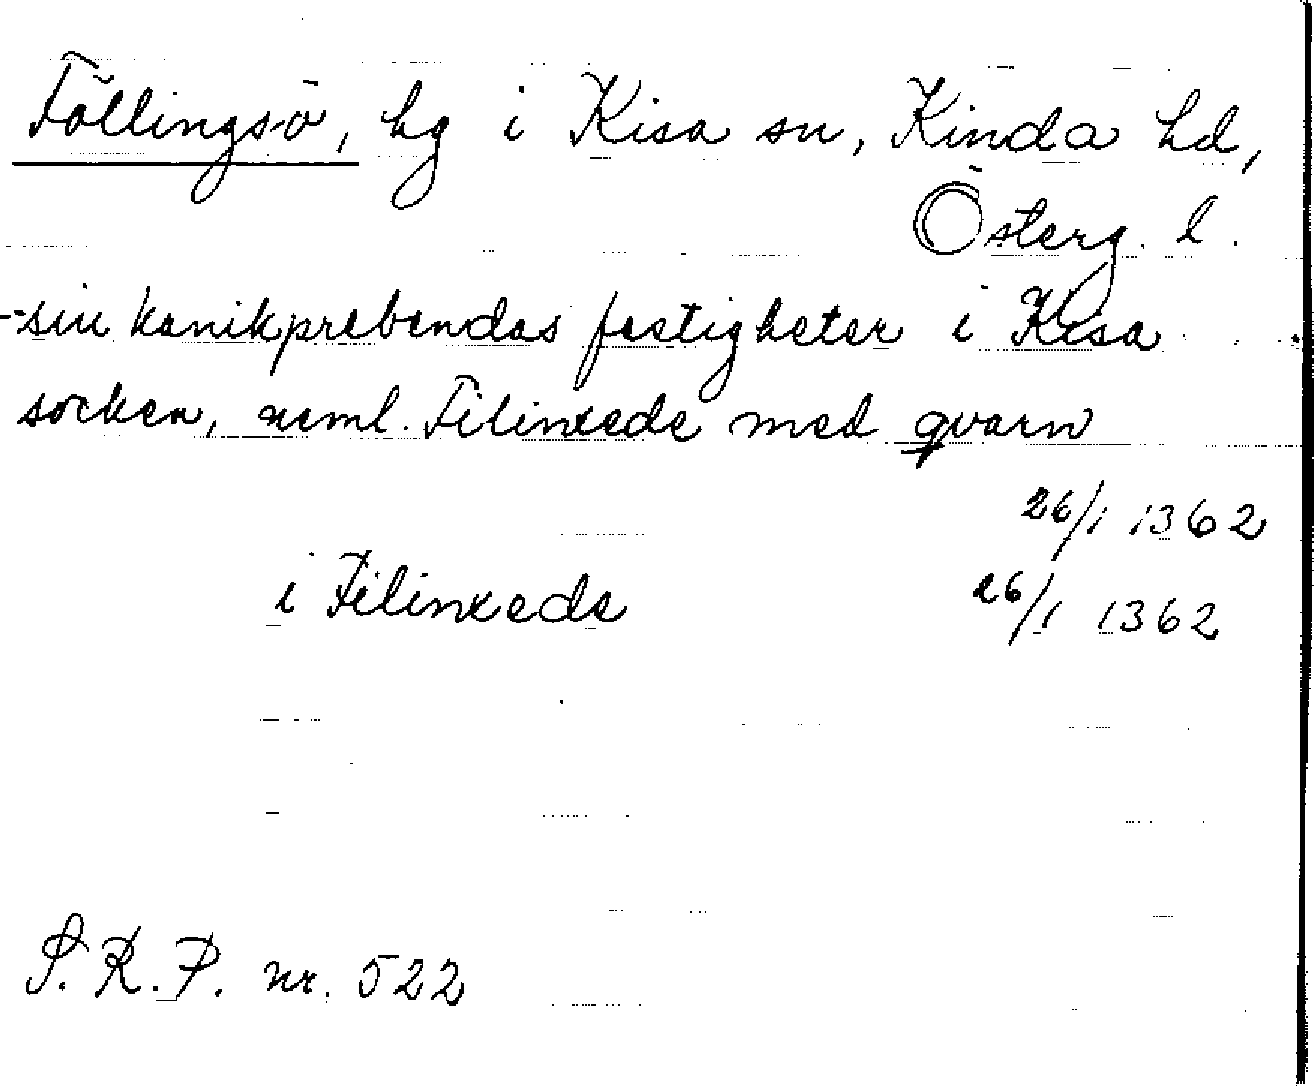 Föllingsö, hg i Kisa sn, Kinda hd,
Österg. l.
-sin kanikprebendas fastigheter i Kisa
socken, neml. Filinxede med qvarn
26/1 1362
i Filinxede 26/1 1362
S.R.P. nr. 522